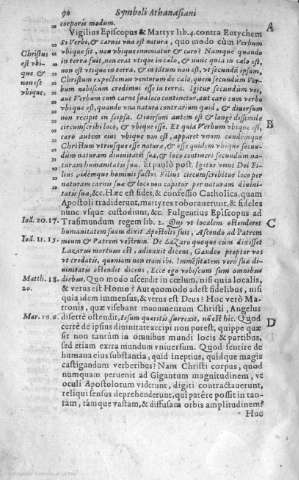 90 Symboli Athanasiani
corporis modum.
Vigilius Episcopus & Martyr lib. 4. contra Eutychem
Si Verbi, & carnis vna est natura, quo modo cùm Verbum
Christus vbique sit, non vbique inueniatur & caro? Namque quando
est vbi- in terra fuit, non erat vtique in cælo, & nunc quia in cælo est,
que & non est vtique in terra, & in tantum non est, vt secundùm ipsam,
non est Christum expectemus venturum de cælo, quem secundùm Ver-
vbique. bum nobiscum credimus esse in terra. Igitur secundùm vos,
aut Verbum cum carne sua loco continetur, aut caro cum verbo
vbique est, quando vna natura contrarium quid, & diuersum
non recipit in seipsa. Diuersum autem est & longè dissimile
circumscribi loco, & vbique esse. Et quia Verbum vbique est,
caro autem eius vbique non est, apparet vnum eundemque
Christum vtriusque esse naturæ, & esse quidem vbique secun-
dùm naturam diuinitatis suæ, & loco contineri secundùm na-
turam humanitatis suæ. Et paulò post. Igitur vnus Dei Fi-
lius, idemque hominis factus Filius circumscribitur loco per
naturam carnis suæ & loco non capitur per naturam diuini-
tatis suæ, &c. Hæc est fides, & confessio Catholica, quam
Apostoli tradiderunt, martyres roborauerunt, & fideles
nunc vsque custodiunt, &c. Fulgentius Episcopus ad
Ioã. 20. 17. Trasimundum regem lib. 2. Qui vt localem ostenderet
humanitatem suam dixit Apostolis suis, Ascendo ad Patrem
Ioã. 11. 15. meum & Patrem vestrum. De Lazaro quoque cùm dixisset
Lazarus mortuus est, adiunxit dicens, Gaudeo propter vos
vt credatis, quoniam non eram ibi. Immensitatem verò suæ di-
uinitatis ostendit dicens, Ecce ego vobiscum sum omnibus
Matth. 28. diebus. Quo modo ascendit in cœlum, nisi quia localis,
20. & verus est Homo? Aut quomodo adest fidelibus, nisi
quia idem immensus, & verus est Deus? Hoc verò Ma-
tronis, quæ visebant monumentum Christi, Angelus
Mar. 16. 6. disertè ostendit,
Quod
certè de ipsius diuinitate accipi non potest, quippe quæ
sit non tantùm in omnibus mundi locis & partibus,
sed etiam extra mundum vniuersum. Quod sentire de
humana eius substantia, quid ineptius, quidque magis
castigandum verberibus? Nam Christi corpus, quod
numquam peruenit ad Gigantum magnitudinem, vt
oculi Apostolorum viderunt, digiti contrectauerunt,
reliqui sensus deprehenderunt, qui patère possit in tan-
tam, tàmque vastam, & diffusam orbis amplitudinem?
Hoc
A
B
C
D